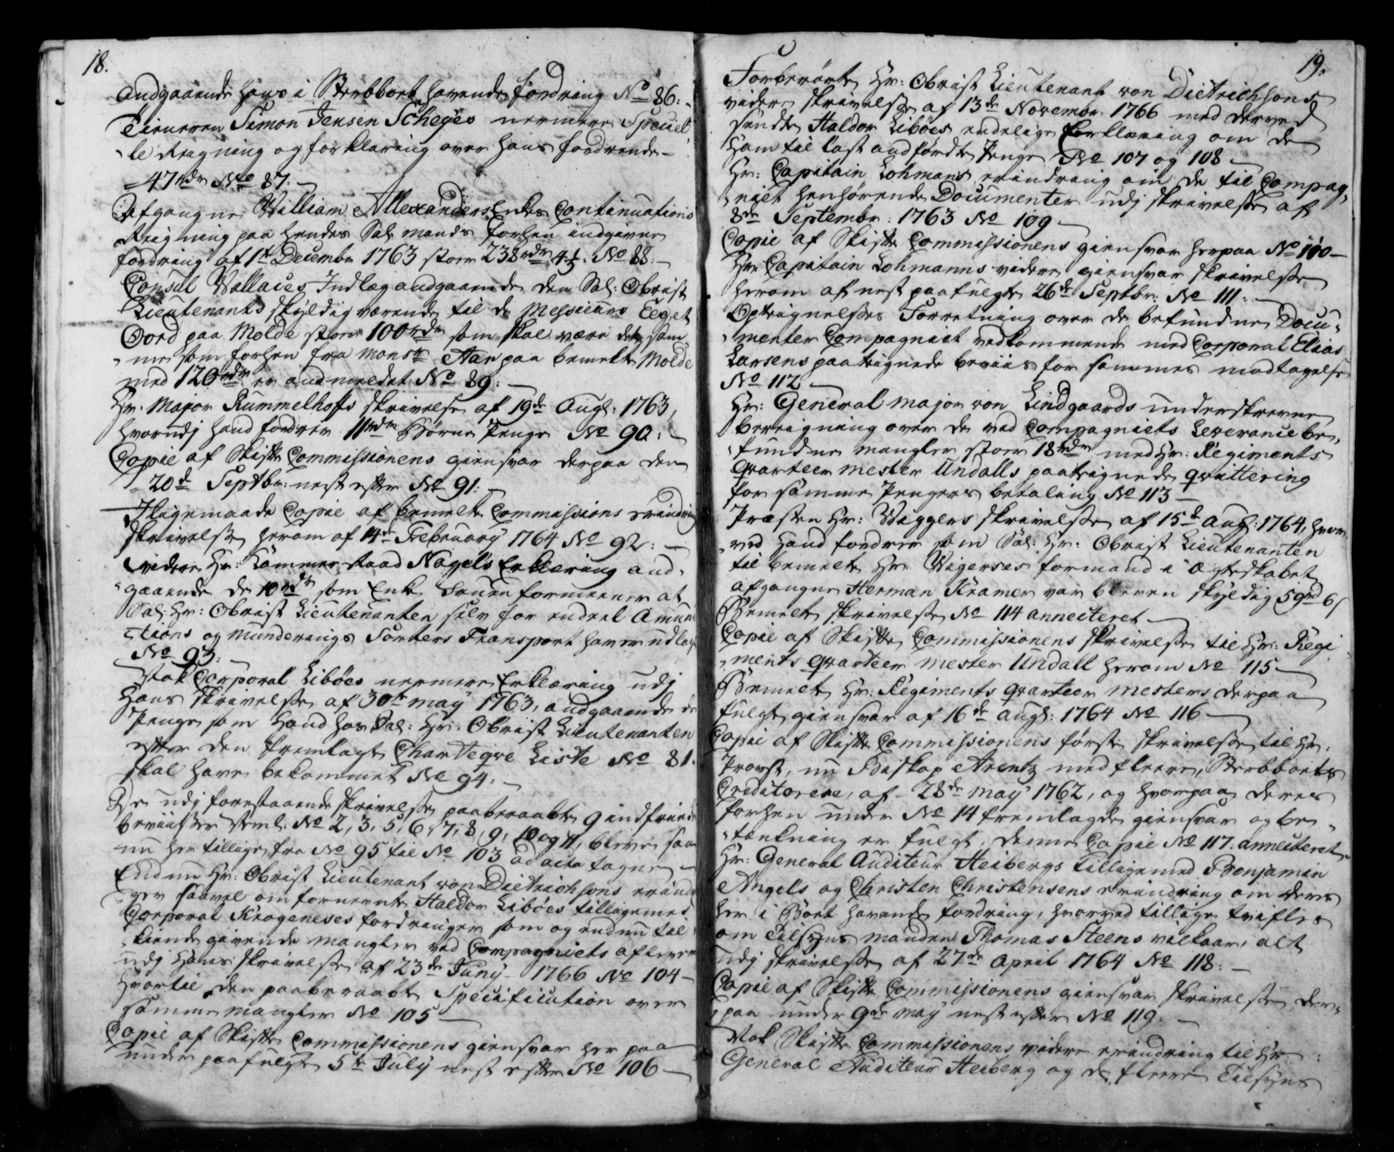 18.
Andgaaende hans i Sterbboet havende fordring No 86:
Tieneren Simon Jensen Scheyes nermere Speciel
le Regning og forklaring over hans fordrende
47rdr No 87:
Afgangne William Allexanders Enkes Continuations
Regning paa hendes Sal: mands forhen indgivne
fordring af 1te December 1763 stoer 238rdr No 88:
Consul Wallaces Indlæg andgaaende den Sal: Obrist
Lieutenants skyldig værende til de Messieurs
Oord paa Molde stoer 100rdr som skal være den sam
me som forhen fra Monsr paa bemelte Molde
med 120rdr er andmeldet No 89:
Hr: Major Rummelhoffs skrivelse af 19de Augt: 1763,
hvorudj hand fordrer 11rdr Børne Penge No 90:
Copie af Skifte Commissionens giensvar derpaa den
20de Septbr: nest efter No 91:
Ligemaade Copie af bemelte Commissions erindring
skrivelse herom af 14de February 1764 No 92:
videre Hr: Kammer Raad Nagels Erklering and
gaaende de 10rdr som Enke Fruen formeener at
Sal: Hr: Obrist Lieutenanten selv for endeel Amuni
tions og Munderings Sorters Transport haver udlagt
No 93:
Nok Corporal Libøes nermere Erklæring udj
Hans skrivelse af 30te may 1763, andgaaende de
Penge som Hand hos Sal: Hr: Obrist Lieutenanten
efter den fremlagte Charteqve Liste No 81.
skal have bekommet No 94:
De udj forestaaende skrivelse paaberaabte 9 indfriede
beviiser 2, 3, 5, 6, 7, 8, 9, 10 og 11, bleve saa
nu her tillige fra No 95 til No 103 ad acta tagne
Endnu Hr: Obrist Lieutenant von Dietrichsons erindr
ger saavel om fornevnte Haldor Libøes tilligemed
Corporal Krogeneses fordringer som og endnu til
kiende givende mangler ved Compagniets aflever
udj Hans skrivelse af 23de Juny 1766 No 104
Hvortil den paaberaabte Specification over
samme mangler No 105
Copie af Skifte Commissionens giensvar her paa
under paafulgte 5te July nest efter No 106
19.
Forberørte Hr: Obrist Lieutenant von Dietrichsons
videre skrivelse af 13de November 1766 med derved
sendte Haldor Libøes endelige Forklaring om de
Ham til last andførte Penge No 107 og 108
Hr: Capitain Lohmans erindring om de til Compag
niet henhørende Documenter udj skrivelse af
8de Septembr: 1763 No 109
Copie af Skifte Commissionens giensvar herpaa No 110
Hr: Capitain Lohmanns videre giensvar skrivelse
herom af nest paafulgte 26de Septbr: No 111:
Optegnelses Forretning over de befundne Docu
menter Compagniet vedkommende med Corporal Elias
Larsens paategnede beviis for sammes modtagelse
No 112
Hr: General major von Lindgaards underskrevne
beregning over de ved Compagniets Leverance be
fundne mangler stoer 18rdr med Hr: Regiments
Qvarteer mester Undalls paategnede qvittering
for samme Penges betaling No 113
Præsten Hr: Wiggers skrivelse af 15de Augt: 1764, hvor
ved Hand fordrer som Sal: Hr: Obrist Lieutenanten
til bemelte Hr: Wigerses formand i Ægteskabet
afgangne Herman Kramer var bleven skyldig
Bemelte skrivelse No 114 annecteret
Copie af Skifte Commissionens skrivelse til Hr: Regi
ments Qvarteer mester Undall herom No 115
Bemelte Hr: Regiments Qvarteer mesters derpaa
fulgte giensvar af 16de Augt: 1764 No 116
Copie af Skifte Commissionens første skrivelse til Hr:
Provst, nu Biskop Arentz med fleere, Sterbboets
Creditorere, af 28de may 1762, og hvorpaa deres
forhen under No 14 fremlagde giensvar og be
tænkning er fulgt, denne Copie No 117. annecteret
Hr: General Auditeur Heibergs tilligemed Benjamin
Angels og Christen Christensens erindring om deres
her i Boet havende fordring, hvorved tillige
om Tilsyns manden Thomas Steens vilkaar, alt
udj skrivelse af 27de April 1764 No 118:
Copie af Skifte Commissionens giensvar skrivelse der
paa under 9de may nest efter No 119:
Nok Skifte Commissionens videre erindring til Hr:
General Auditeur Heiberg og de fleere Tilsyns